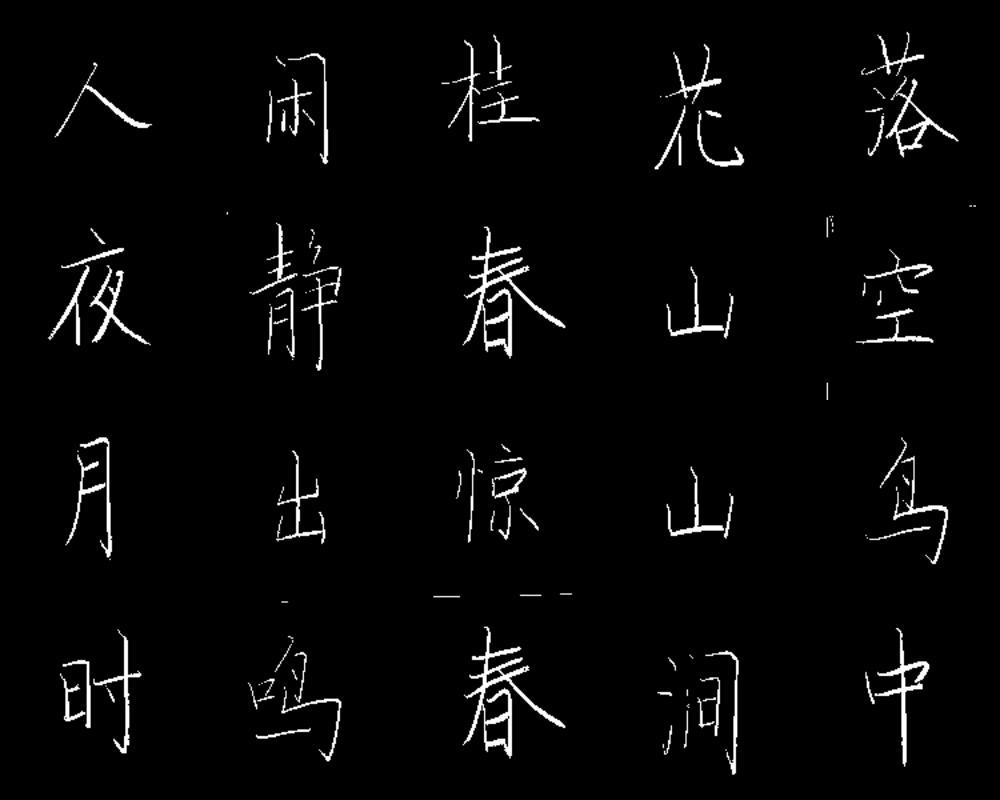 人闲桂花落
夜静春山空
月出惊山鸟
时鸣春涧中